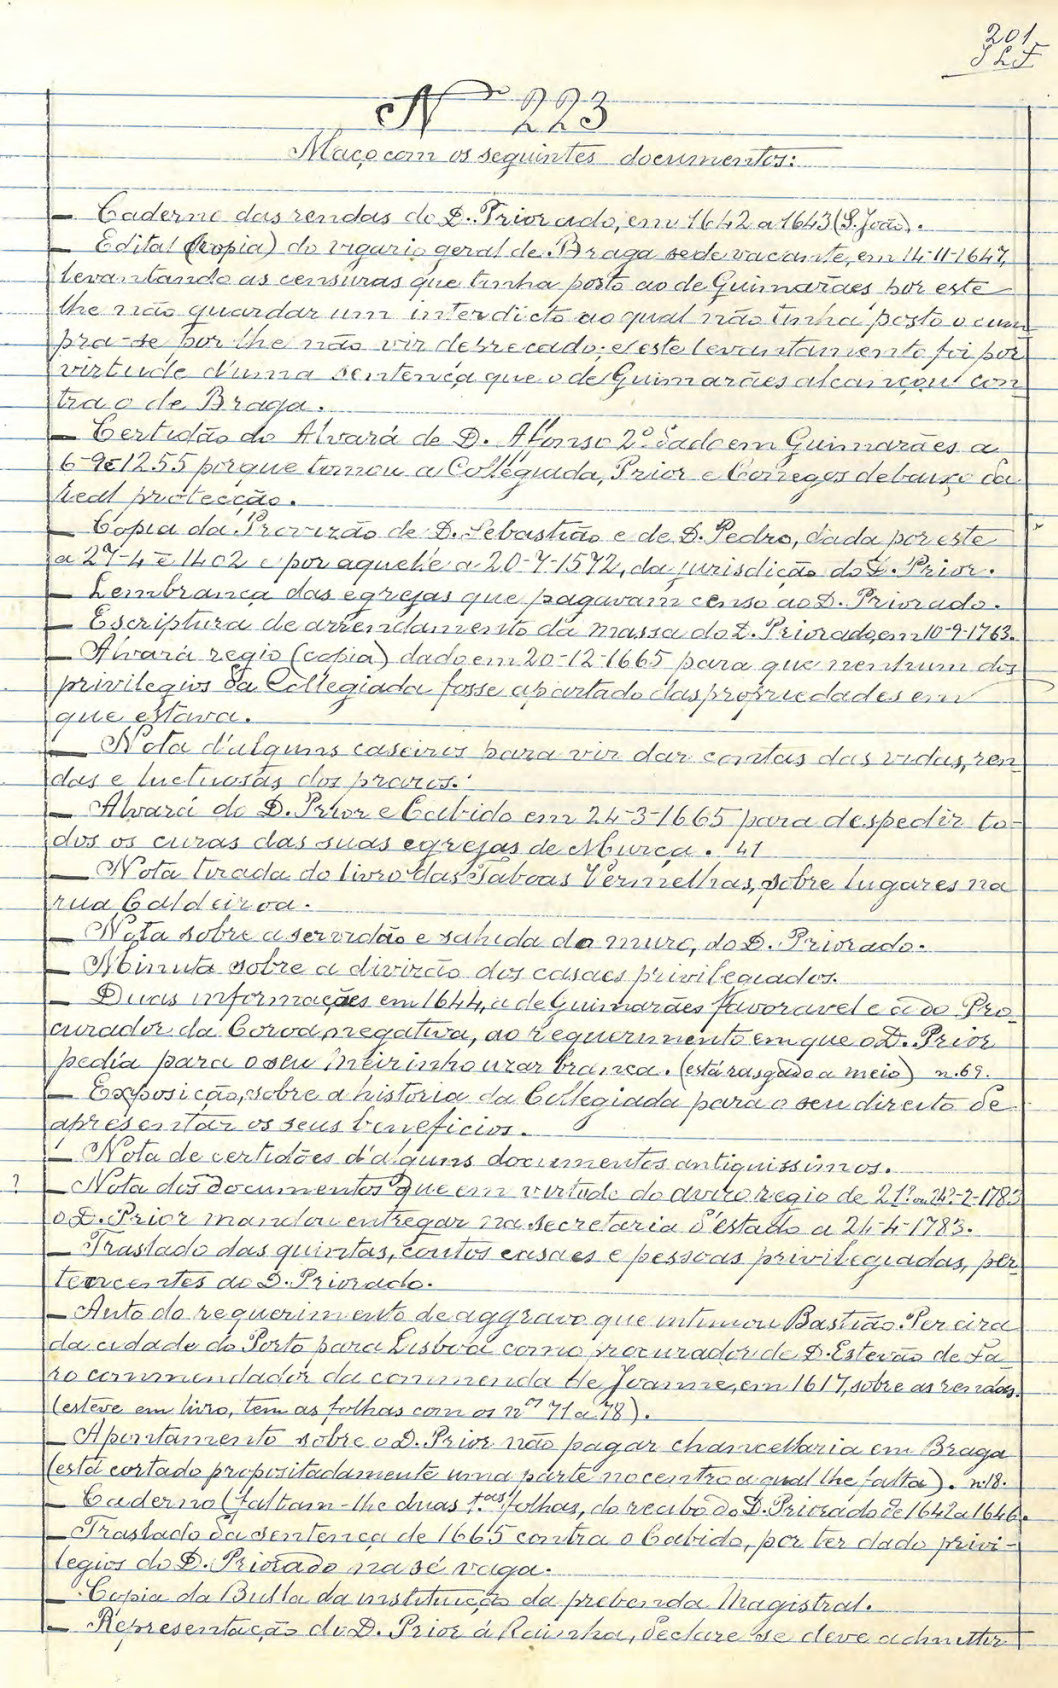 201
SLF
Nº 223
Maço com os seguintes documentos:
— Caderno das rendas do D. Priorado, em 1642 a 1643 (S. João).
— Edital (copia) do vigario geral de Braga sede vacante, em 14-11-1647,
levantando as censuras que tinha posto ao de Guimarães por este
lhe não guardar um interdicto ao qual não tinha posto o cum
pra-se por lhe não vir deprecado; e este levantamento foi por
virtude d'uma sentença que o de Guimarães alcançou con
tra o de Braga.
— Certidão do Alvará de D. Afonso 2º dado em Guimarães a
6-9 E 1255 porque tomou a Collegiada, Prior e Conegos debaixo da
real protecção.
— Copia da Provizão de D. Sebastião e de D. Pedro, dada por este
a 27-4 E 1402 e por aquele a 20-7-1572, da jurisdição do D. Prior.
— Lembrança das egrejas que pagavam censo ao D. Priorado.
— Escriptura de arrendamento da massa do D. Priorado, em 10-9-1763.
— Alvará regio (copia) dado em 20-12-1665 para que nenhum dos
privilegios da Collegiada fosse apartado das propriedades em
que estava.
— Nota d'alguns caseiros para vir dar contas das vidas, ren
das e luctuosas dos prazos.
— Alvará do D. Prior e Cabido em 24-3-1665 para despedir to-
dos os curas das suas egrejas de Murça. 41
— Nota tirada do livro das Taboas Vermelhas, sobre lugares na
rua Caldeiroa.
— Nota sobre a servidão e sahida do muro, do D. Priorado.
— Minuta sobre a divizão dos casaes privilegiados.
— Duas informações em 1644, a de Guimarães favoravel e a do Pro-
curador da Coroa negativa, ao requerimento em que o D. Prior
pedia para o seu meirinho uzar branca. (está rasgado a meio) n. 69.
— Exposição, sobre a historia da Collegiada para o seu direito de
apresentar os seus beneficios.
— Nota de certidões d'alguns documentos antiquissimos.
? — Nota dos documentos que em virtude do avizo regio de 21º ou 24º-2-1783
o D. Prior mandou entregar na secretaria d'estado a 24-4-1783.
— Traslado das quintas, coutos casaes e pessoas privilegiadas, per-
tencentes ao D. Priorado.
— Auto do requerimento de aggravo que intimou Bastião Pereira
da cidade do Porto para Lisboa como procurador de D. Estevão de Fa-
ro commendador da commenda de Joanne, em 1617, sobre as rendas.
(esteve em livro, tem as folhas com os nos 71 a 78).
— Apontamento sobre o D. Prior não pagar chancellaria em Braga
(está cortado propositadamente uma parte no centro a qual lhe falta). n. 18.
— Caderno (faltam-lhe duas 1.as folhas, do recibo do D. Priorado de 1642 a 1646.
— Traslado da sentença de 1665 contra o Cabido, por ter dado privi-
legios do D. Priorado na sé vaga.
— Copia da Bulla da instituição da prebenda Magistral.
— Representação do D. Prior á Rainha, declare se deve admittir